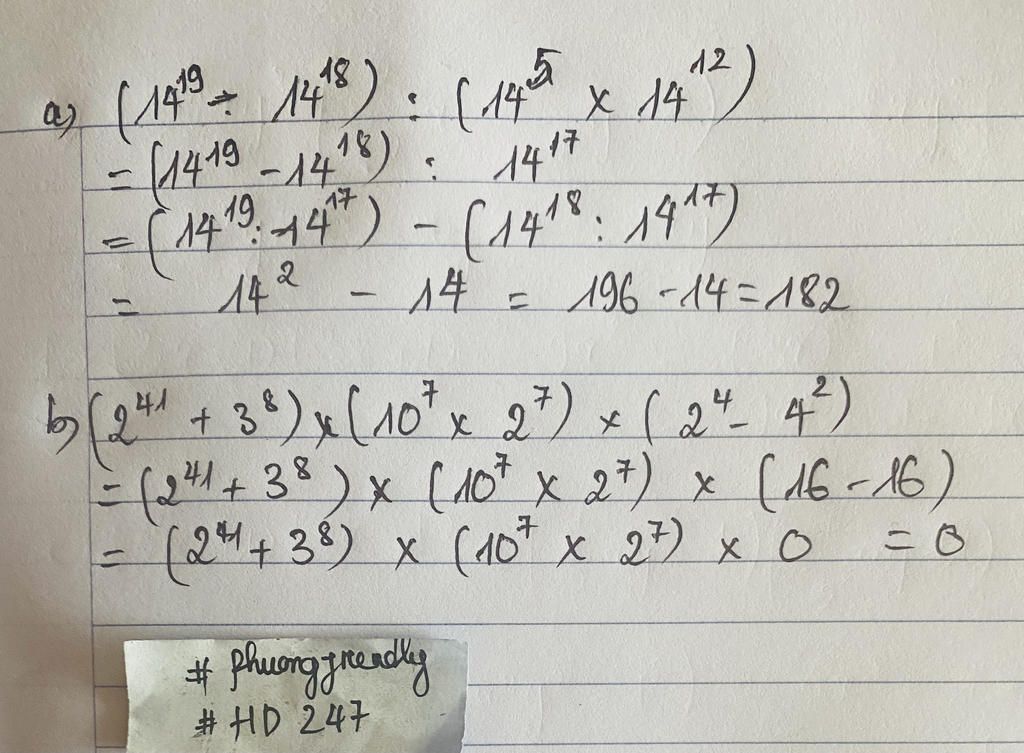 a) (14¹⁹ - 14¹⁸) : (14⁵ x 14¹²)
= (14¹⁹ - 14¹⁸) : 14¹⁷
= (14¹⁹ : 14¹⁷) - (14¹⁸ : 14¹⁷)
= 14² - 14 = 196 - 14 = 182
b) (2⁴¹ + 3⁸) x (10⁷ x 2⁷) x (2⁴ - 4²)
= (2⁴¹ + 3⁸) x (10⁷ x 2⁷) x (16 - 16)
= (2⁴¹ + 3⁸) x (10⁷ x 2⁷) x 0 = 0
# phuongfrendly
# HD 247